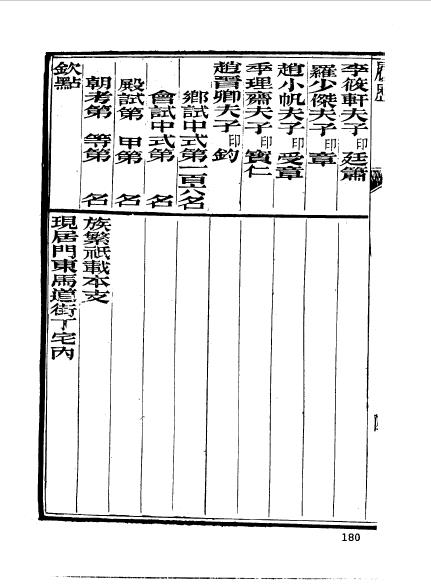 履歷
李筱軒夫子印廷簫
羅少傑夫子印章
趙小帆夫子印受章
季理齋夫子印寶仁
趙晋卿夫子印鈞
鄉試中式第一百六名
會試中式第 名
殿試第 甲第 名
朝考第 等第 名
欽點
族繁祇載本支
現居門東馬道街丁宅內
180